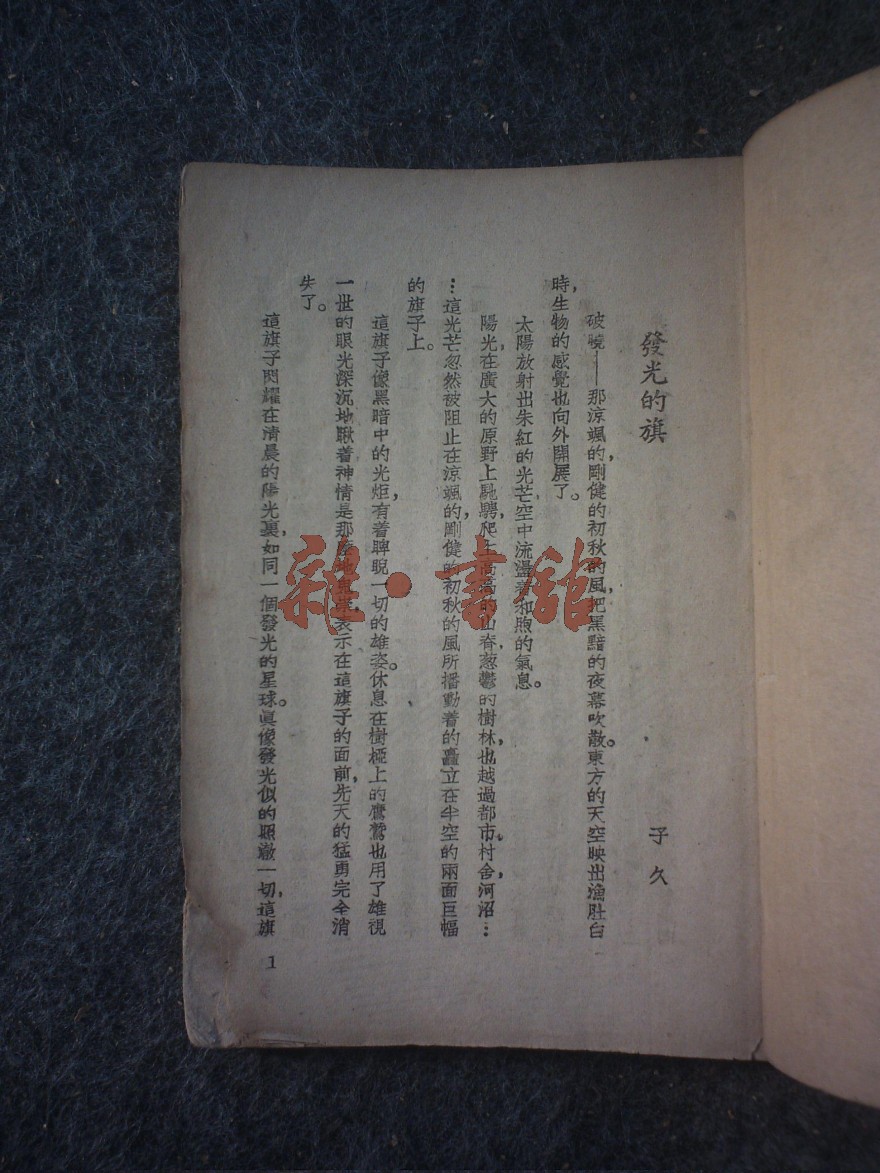 發光的旗
子久
破曉——那涼颯的，剛健的初秋的風，把黑黯的夜幕吹散。東方的天空映出漁肚白
時，生物的感覺也向外開展了。
太陽放射出朱紅的光芒空中流盪着和煦的氣息。
陽光在廣大的原野上馳騁，爬上高高的山脊，葱鬱的樹林，也越過都市，村舍，河沼…
…這光芒忽然被阻止在涼颯的，剛健的初秋的風所播動着的矗立在半空的兩面巨幅
的旗子上。
這旗子像黑暗中的光炬，有着睥睨一切的雄姿。休息在樹椏上的鷹鷲也用了雄視
一世的眼光深沉地瞅着神情是那麼地 表示在這旗子的面前，先天的猛勇完全消
失了。
這旗子閃耀在清晨的陽光裏，如同一個發光的星球。眞像發光似的照澈一切，這旗
1
雜·書舘